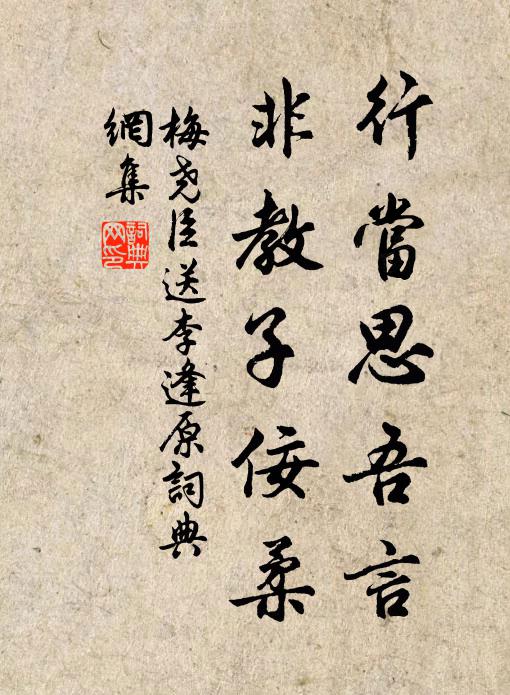 行當思吾言
非教子佞柔
梅堯臣送李逢原詞典
網集
詞典
網印